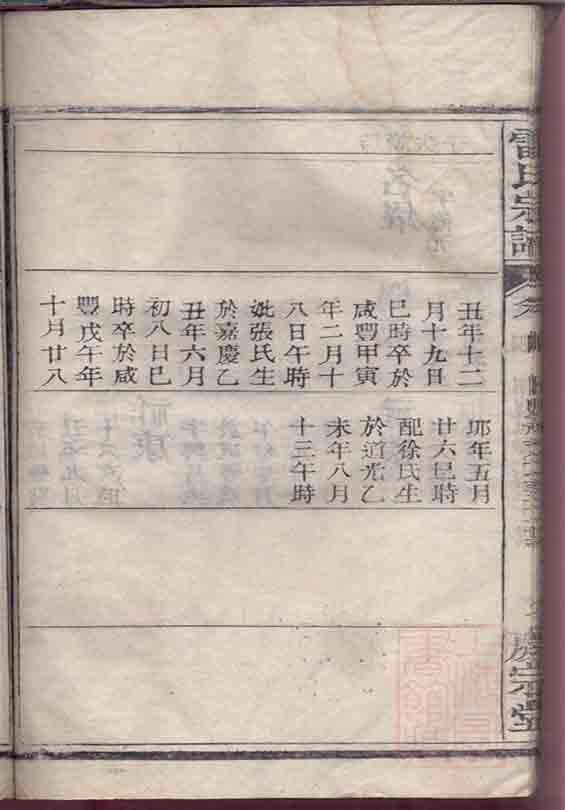 雷氏宗譜
丑年十二
月十九日
巳時卒於
咸豐甲寅
年二月十
八日午時
妣張氏生
於嘉慶乙
丑年六月
初八日巳
時卒於咸
豐戊午年
十月廿八
卯年五月
廿六巳時
配徐氏生
於道光乙
未年八月
十三午時